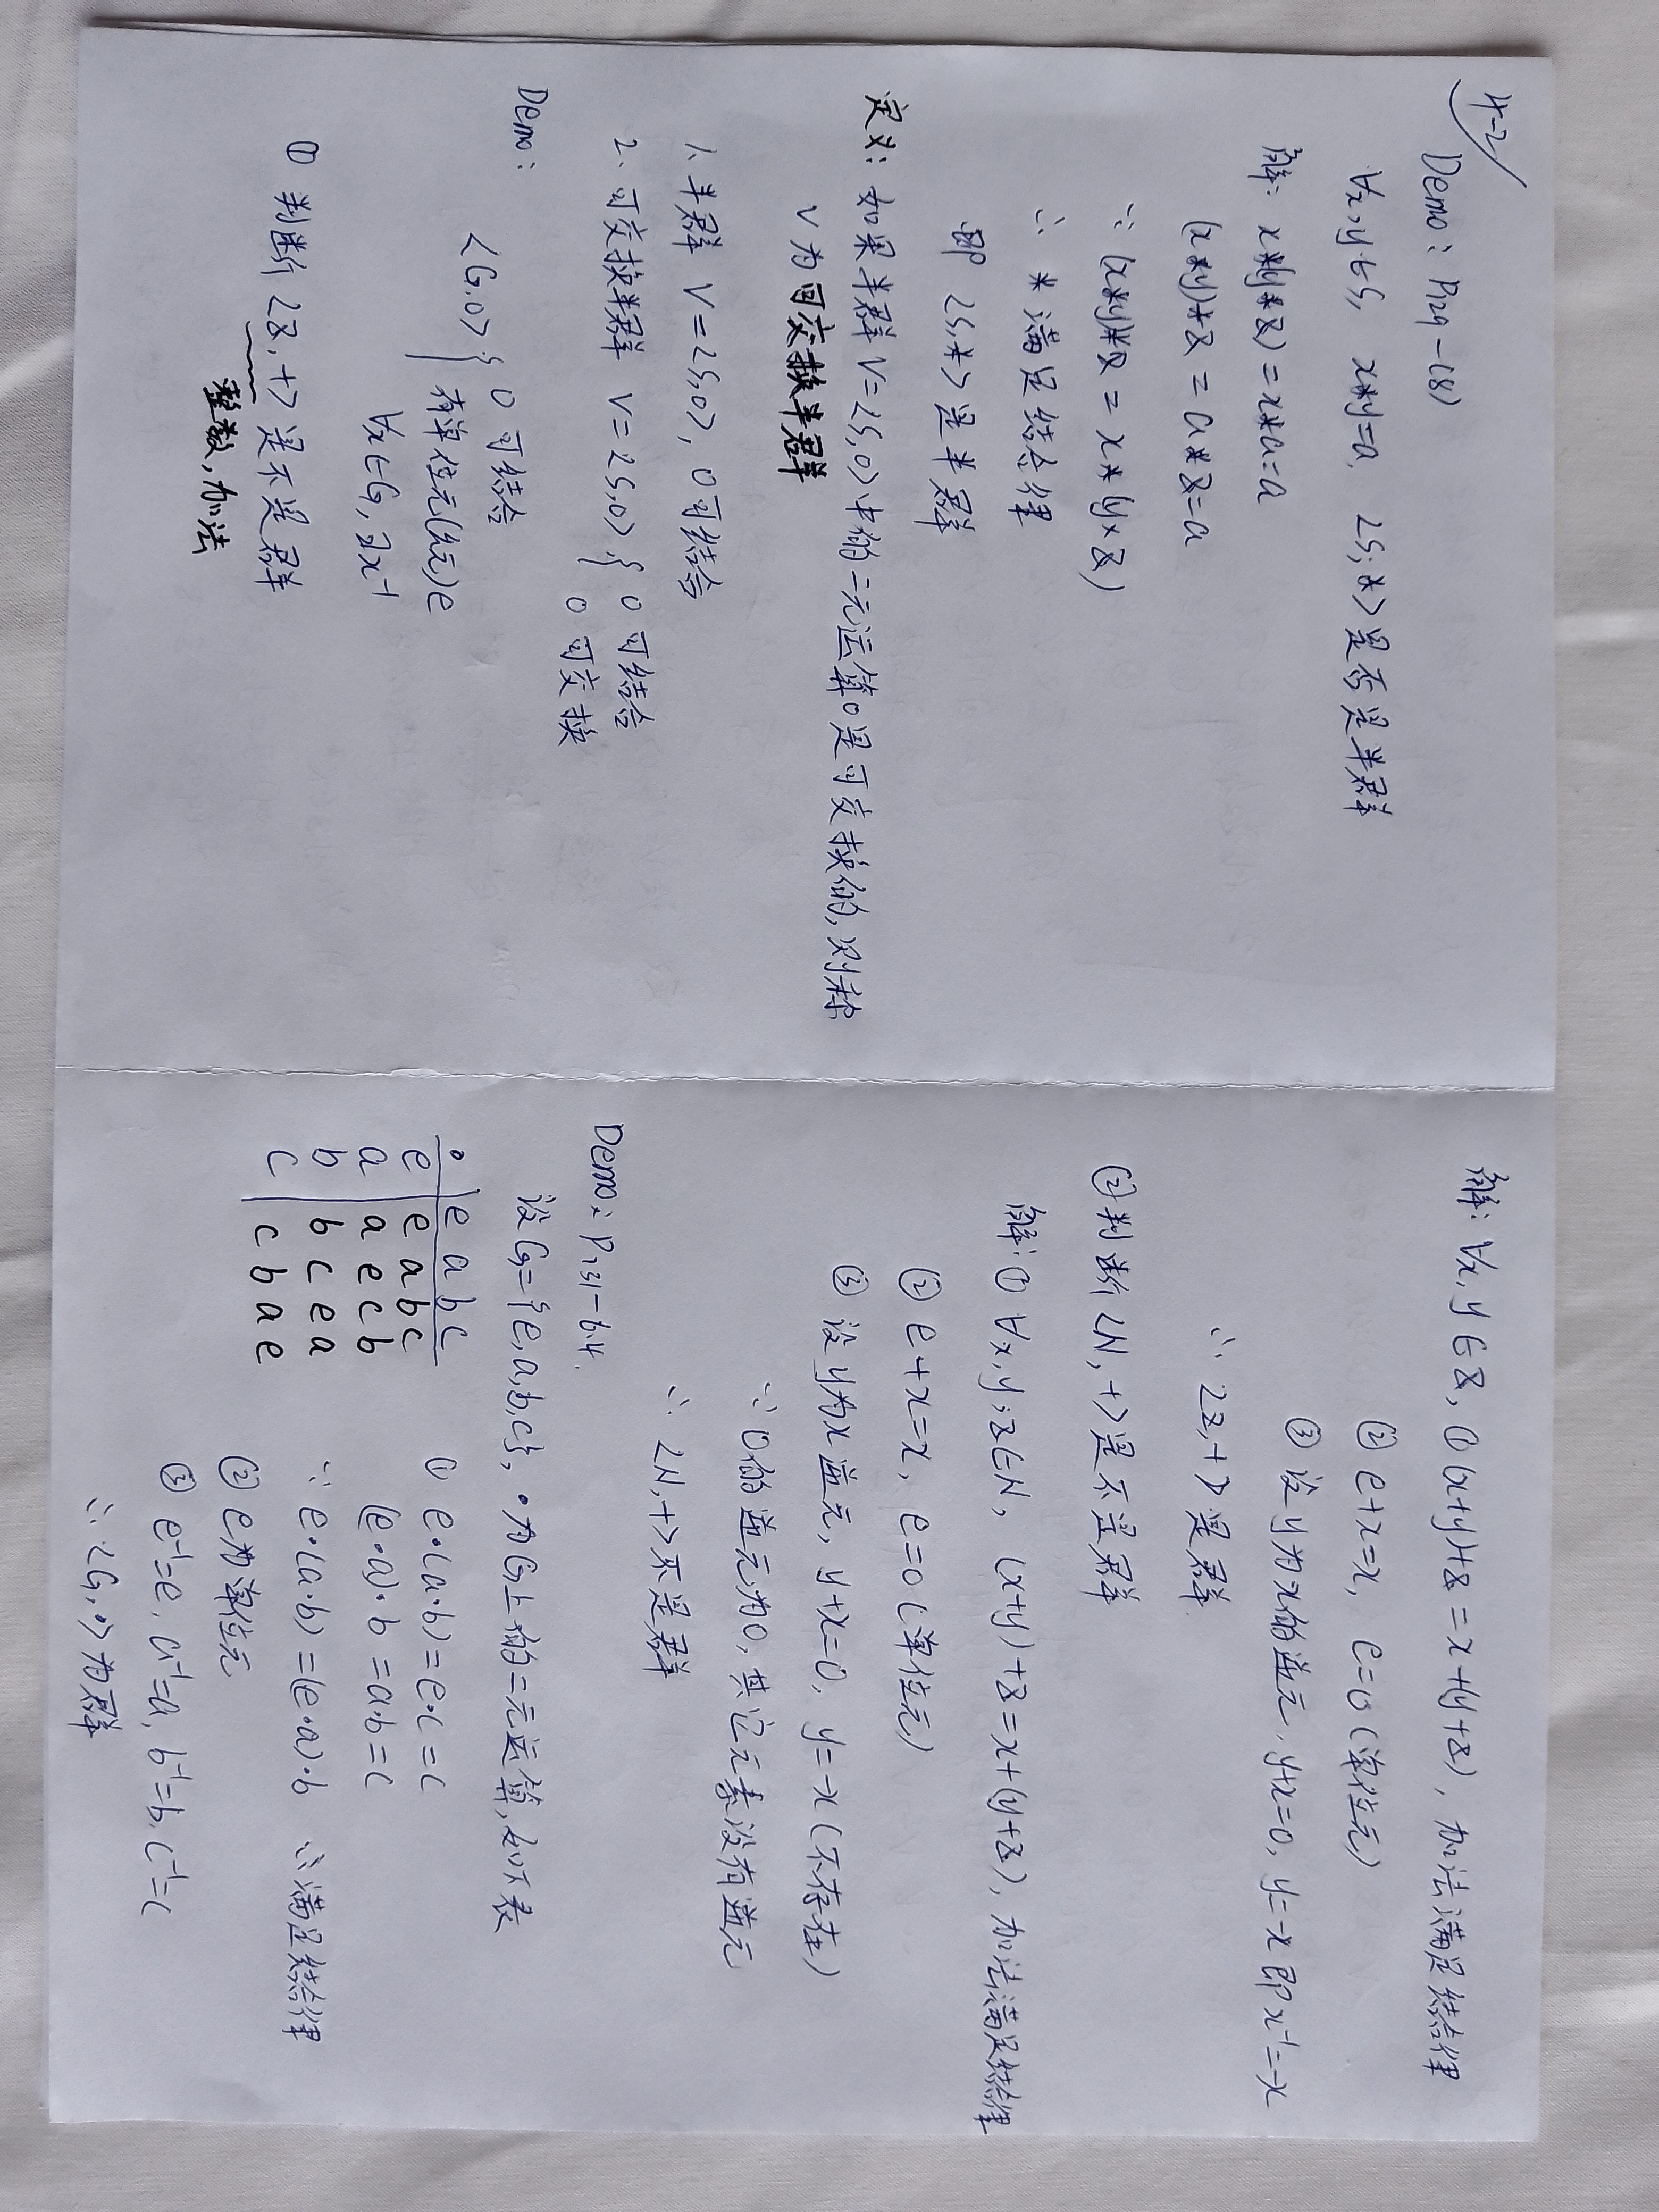 4-2
Demo: P129-(8)
∀x,y∈S, x*y=a, <S;*>是否是半群
解: x*(y*z)=x*a=a
(x*y)*z=a*z=a
∵ (x*y)*z=x*(y*z)
∴ *满足结合律
即 <S,*>是半群
定义: 如果半群V=<S,o>中的二元运算o是可交换的,则称
V为可交换半群
1. 半群 V=<S,o>, o可结合
2. 可交换半群 V=<S,o>, { o 可结合
o 可交换
Demo:
<G,o> { o 可结合
有单位元(幺元)e
∀x∈G, ∃x⁻¹
① 判断<Z,+>是不是群
整数,加法
解: ∀x,y∈Z, ①(x+y)+z=x+(y+z), 加法满足结合律
② e+x=x, e=0(单位元)
③ 设y为x的逆元, y+x=0, y=-x 即x⁻¹=-x
∴ <Z,+>是群
②判断<N,+>是不是群
解:① ∀x,y,z∈N, (x+y)+z=x+(y+z), 加法满足结合律
② e+x=x, e=0(单位元)
③ 设y为x逆元, y+x=0, y=-x(不存在)
∵ 0的逆元为0,其它元素没有逆元
∴ <N,+>不是群
Demo: P131-6.4.
设G={e,a,b,c}, •为G上的二元运算,如下表
• e a b c
e e a b c
a a e c b
b b c e a
c c b a e
① e•(a•b)=e•c=c
(e•a)•b=a•b=c
∵ e•(a•b)=(e•a)•b ∴满足结合律
② e为单位元
③ e⁻¹=e, a⁻¹=a, b⁻¹=b, c⁻¹=c
∴ <G,•>为群